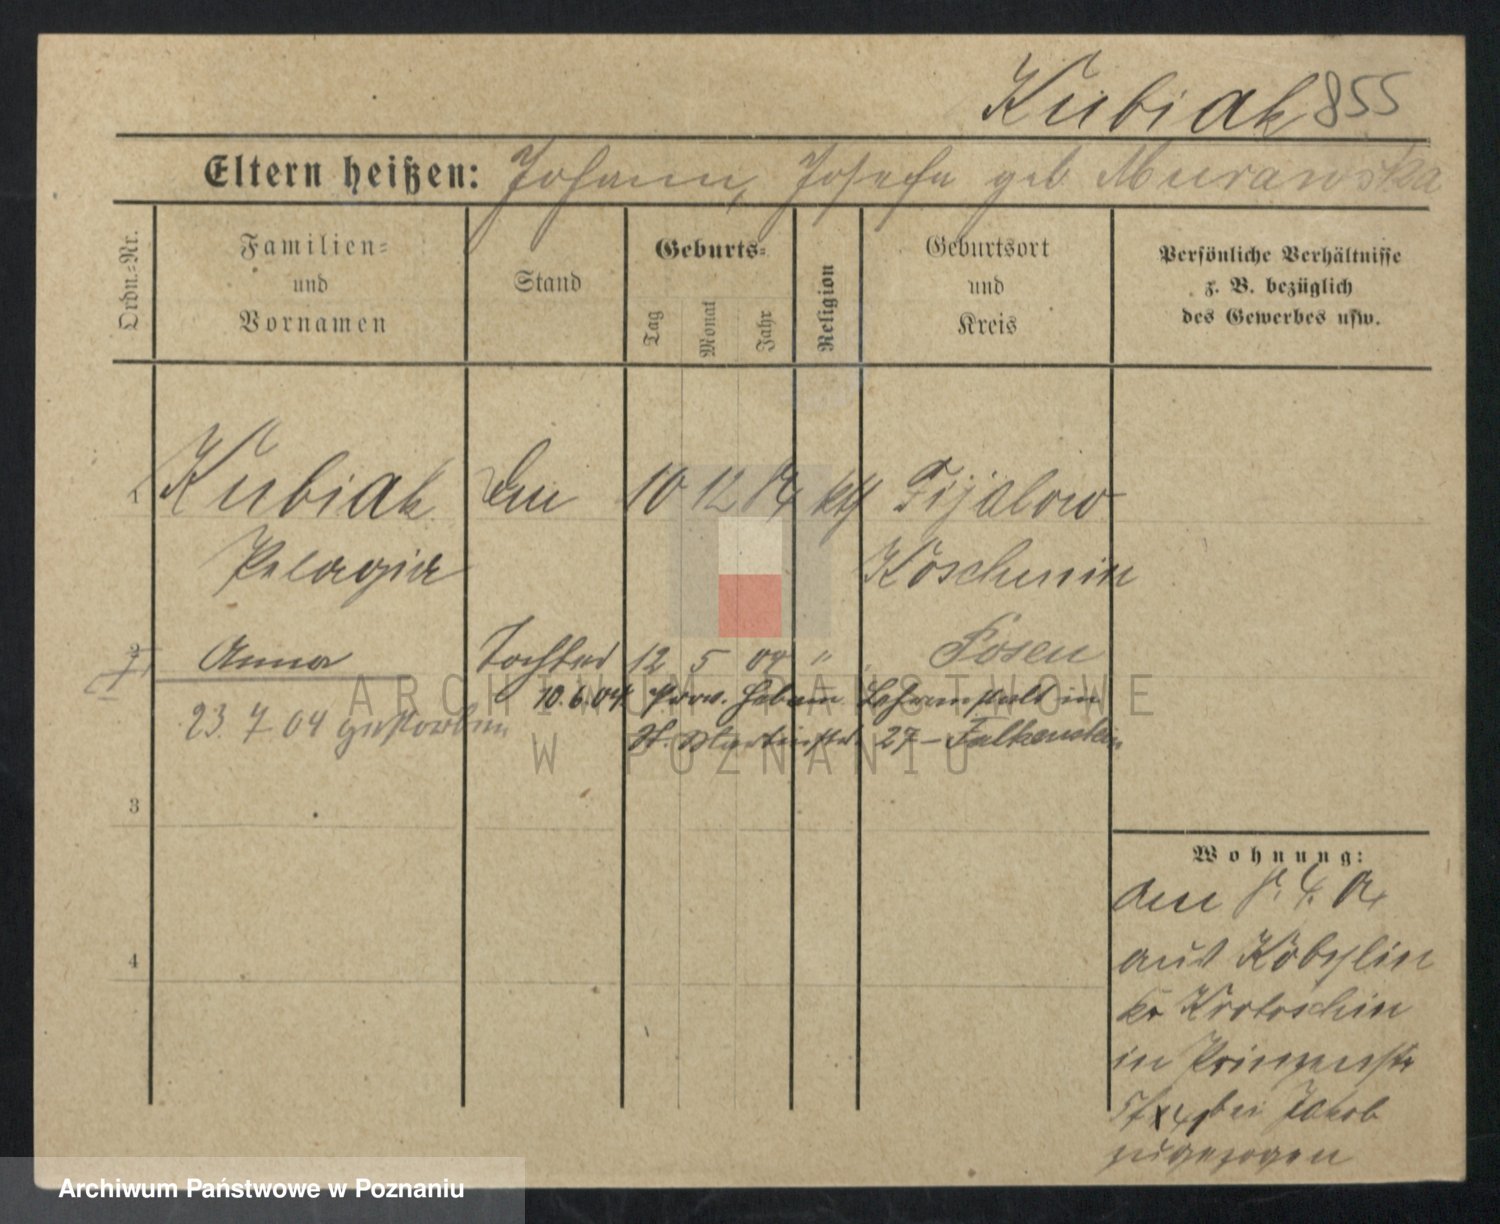 Kubiak 855
Eltern heißen: Johann, Josefa geb Murawska
Ordn.=Nr.
Familien=
und
Vornamen
Stand
Geburts=
Tag
Monat
Jahr
Religion
Geburtsort
und
Kreis
Persönliche Verhältnisse
z. B. bezüglich
des Gewerbes usw.
1 Kubiak 10 12 kth Fijalow
Pelagia Koschmin
2 Anna Tochter 12 5 04 " Posen
10.6.04 Prov. Hebam Lehranstalt in
23.7.04 gestorben
St. Martinstr. 27 – Falkenstein
3
4
Wohnung:
am
aus Kobylin
kr Krotoschin
in Prinzenstr
bei Jakob
zugezogen
ARCHIWUM PAŃSTWOWE
W POZNANIU
Archiwum Państwowe w Poznaniu